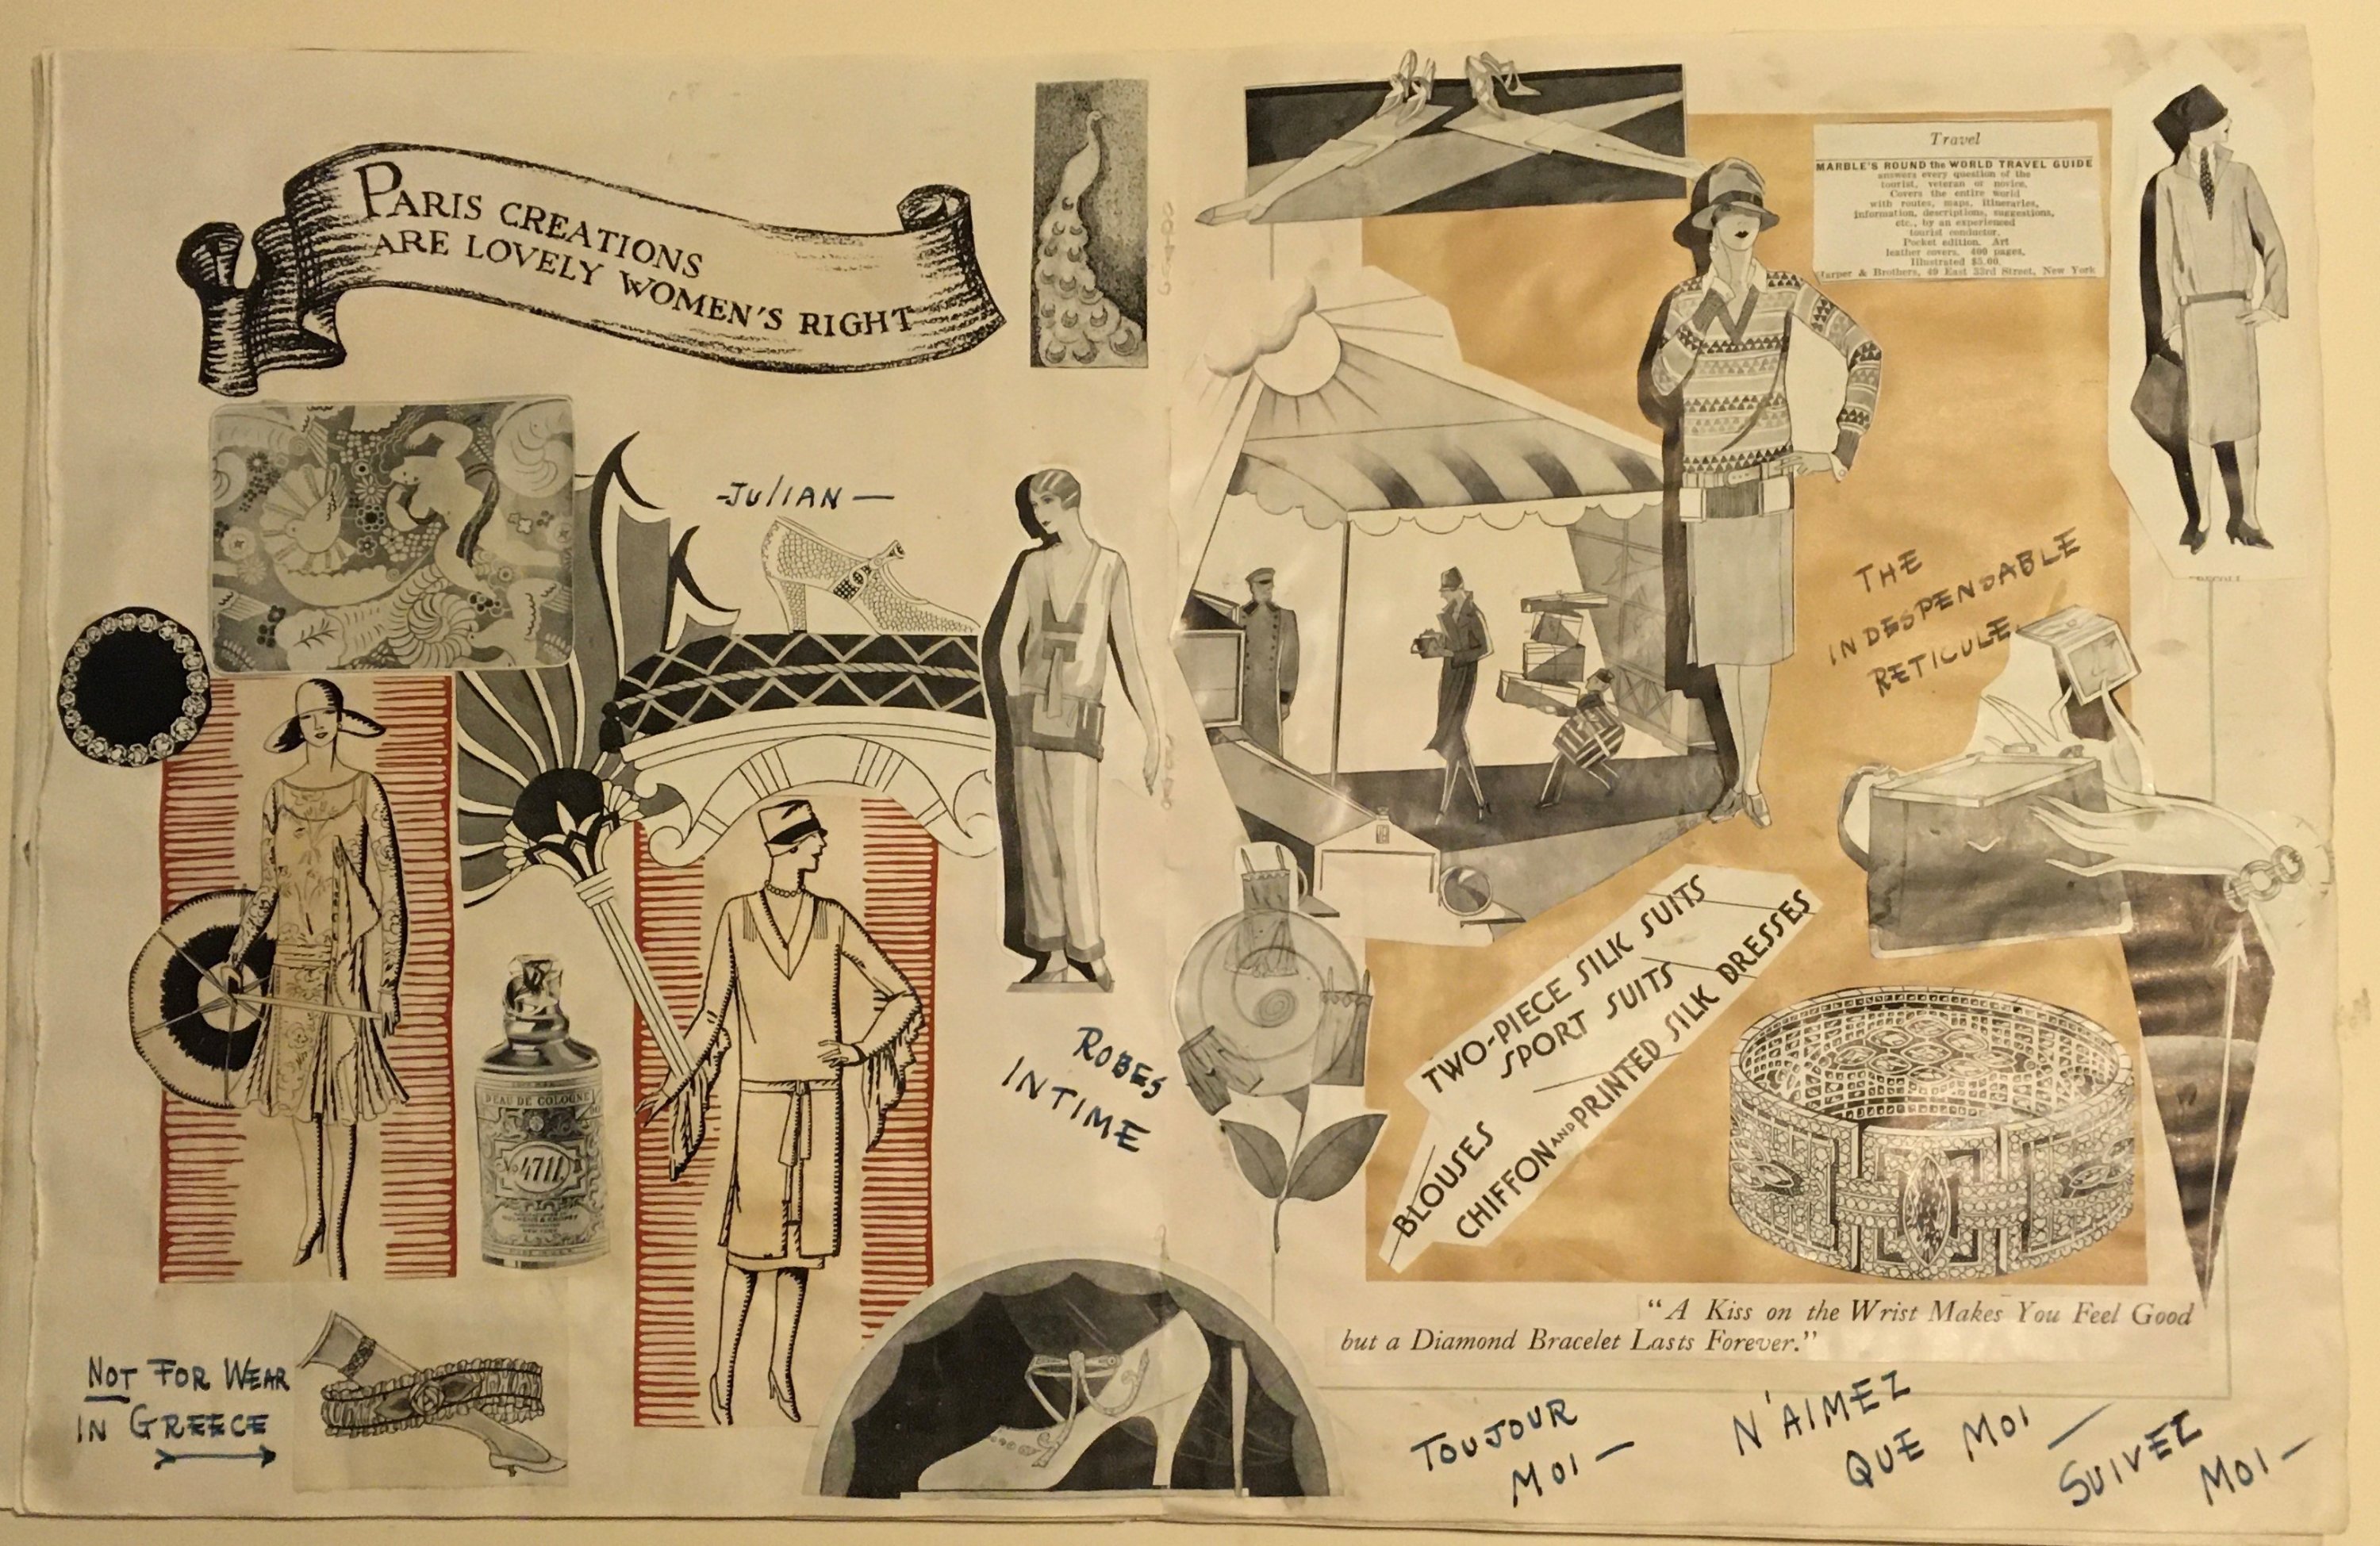 PARIS CREATIONS
ARE LOVELY WOMEN'S RIGHT
-JULIAN-
EAU DE COLOGNE
No. 4711.
NOT FOR WEAR
IN GREECE
ROBES
INTIME
Travel
MARBLE'S ROUND the WORLD TRAVEL GUIDE
answers every question of the
tourist, veteran or novice.
Covers the entire world
with routes, maps, itineraries,
information, descriptions, suggestions,
etc., by an experienced
tourist conductor.
Pocket edition. Art
leather covers. 400 pages.
Illustrated $5.00.
Harper & Brothers, 49 East 33rd Street, New York
THE
INDESPENDABLE
RETICULE.
TWO-PIECE SILK SUITS
SPORT SUITS
BLOUSES
CHIFFON AND PRINTED SILK DRESSES
"A Kiss on the Wrist Makes You Feel Good
but a Diamond Bracelet Lasts Forever."
TOUJOUR
MOI —
N'AIMEZ
QUE MOI —
SUIVEZ
MOI —